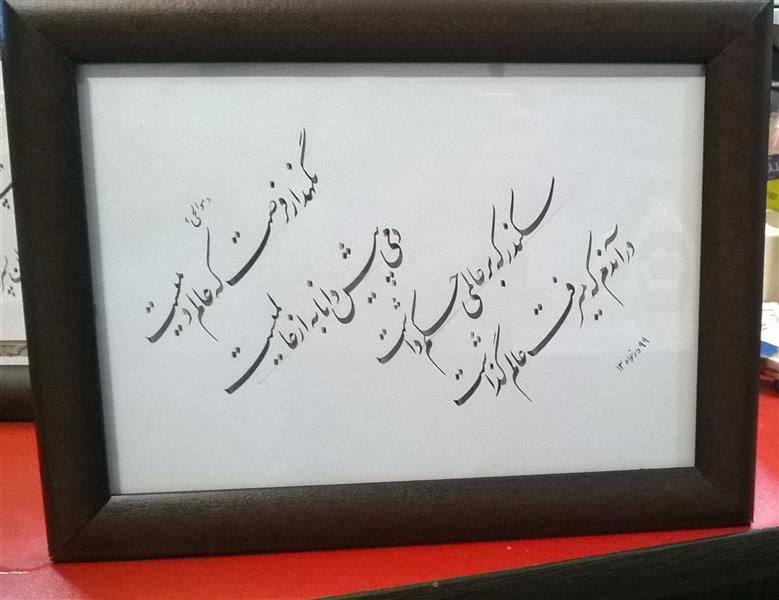 نگهدار فرصت که عالم دمیست
دمی پیش دانا به از عالمیست
سکندر که بر عالمی حکم داشت
در آندم که میرفت عالم گذاشت